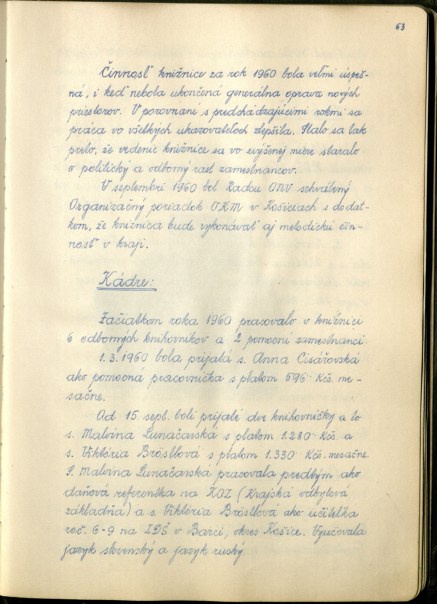 63
Činnosť knižnice za rok 1960 bola veľmi úspeš-
ná, i keď nebola ukončená generálna oprava nových
priestorov. V porovnaní s predchádzajúcimi rokmi sa
práca vo všetkých ukazovateľoch zlepšila. Stalo sa tak
preto, že vedenie knižnice sa vo zvýšenej miere staralo
o politický a odborný rast zamestnancov.
V septembri 1960 bol Radou ONV schválený
Organizačný poriadok OKM v Košiciach s dodat-
kom, že knižnica bude vykonávať aj metodickú čin-
nosť v kraji.
Kádre:
Začiatkom roka 1960 pracovalo v knižnici
6 odborných knihovníkov a 2 pomocní zamestnanci.
1. 3. 1960 bola prijatá s. Anna Cisářovská
ako pomocná pracovníčka s platom 696 Kčs me-
sačne.
Od 15. sept. boli prijaté dve knihovníčky a to
s. Malvína Lunačarská s platom 1.280 Kčs a
s. Viktória Bröstlová s platom 1.330 Kčs mesačne.
S. Malvína Lunačarská pracovala predtým ako
daňová referentka na KOZ (Krajská odbytová
základňa) a s. Viktória Bröstlová ako učiteľka
roč. 6-9 na ZDŠ v Barci, okres Košice. Vyučovala
jazyk slovenský a jazyk ruský.